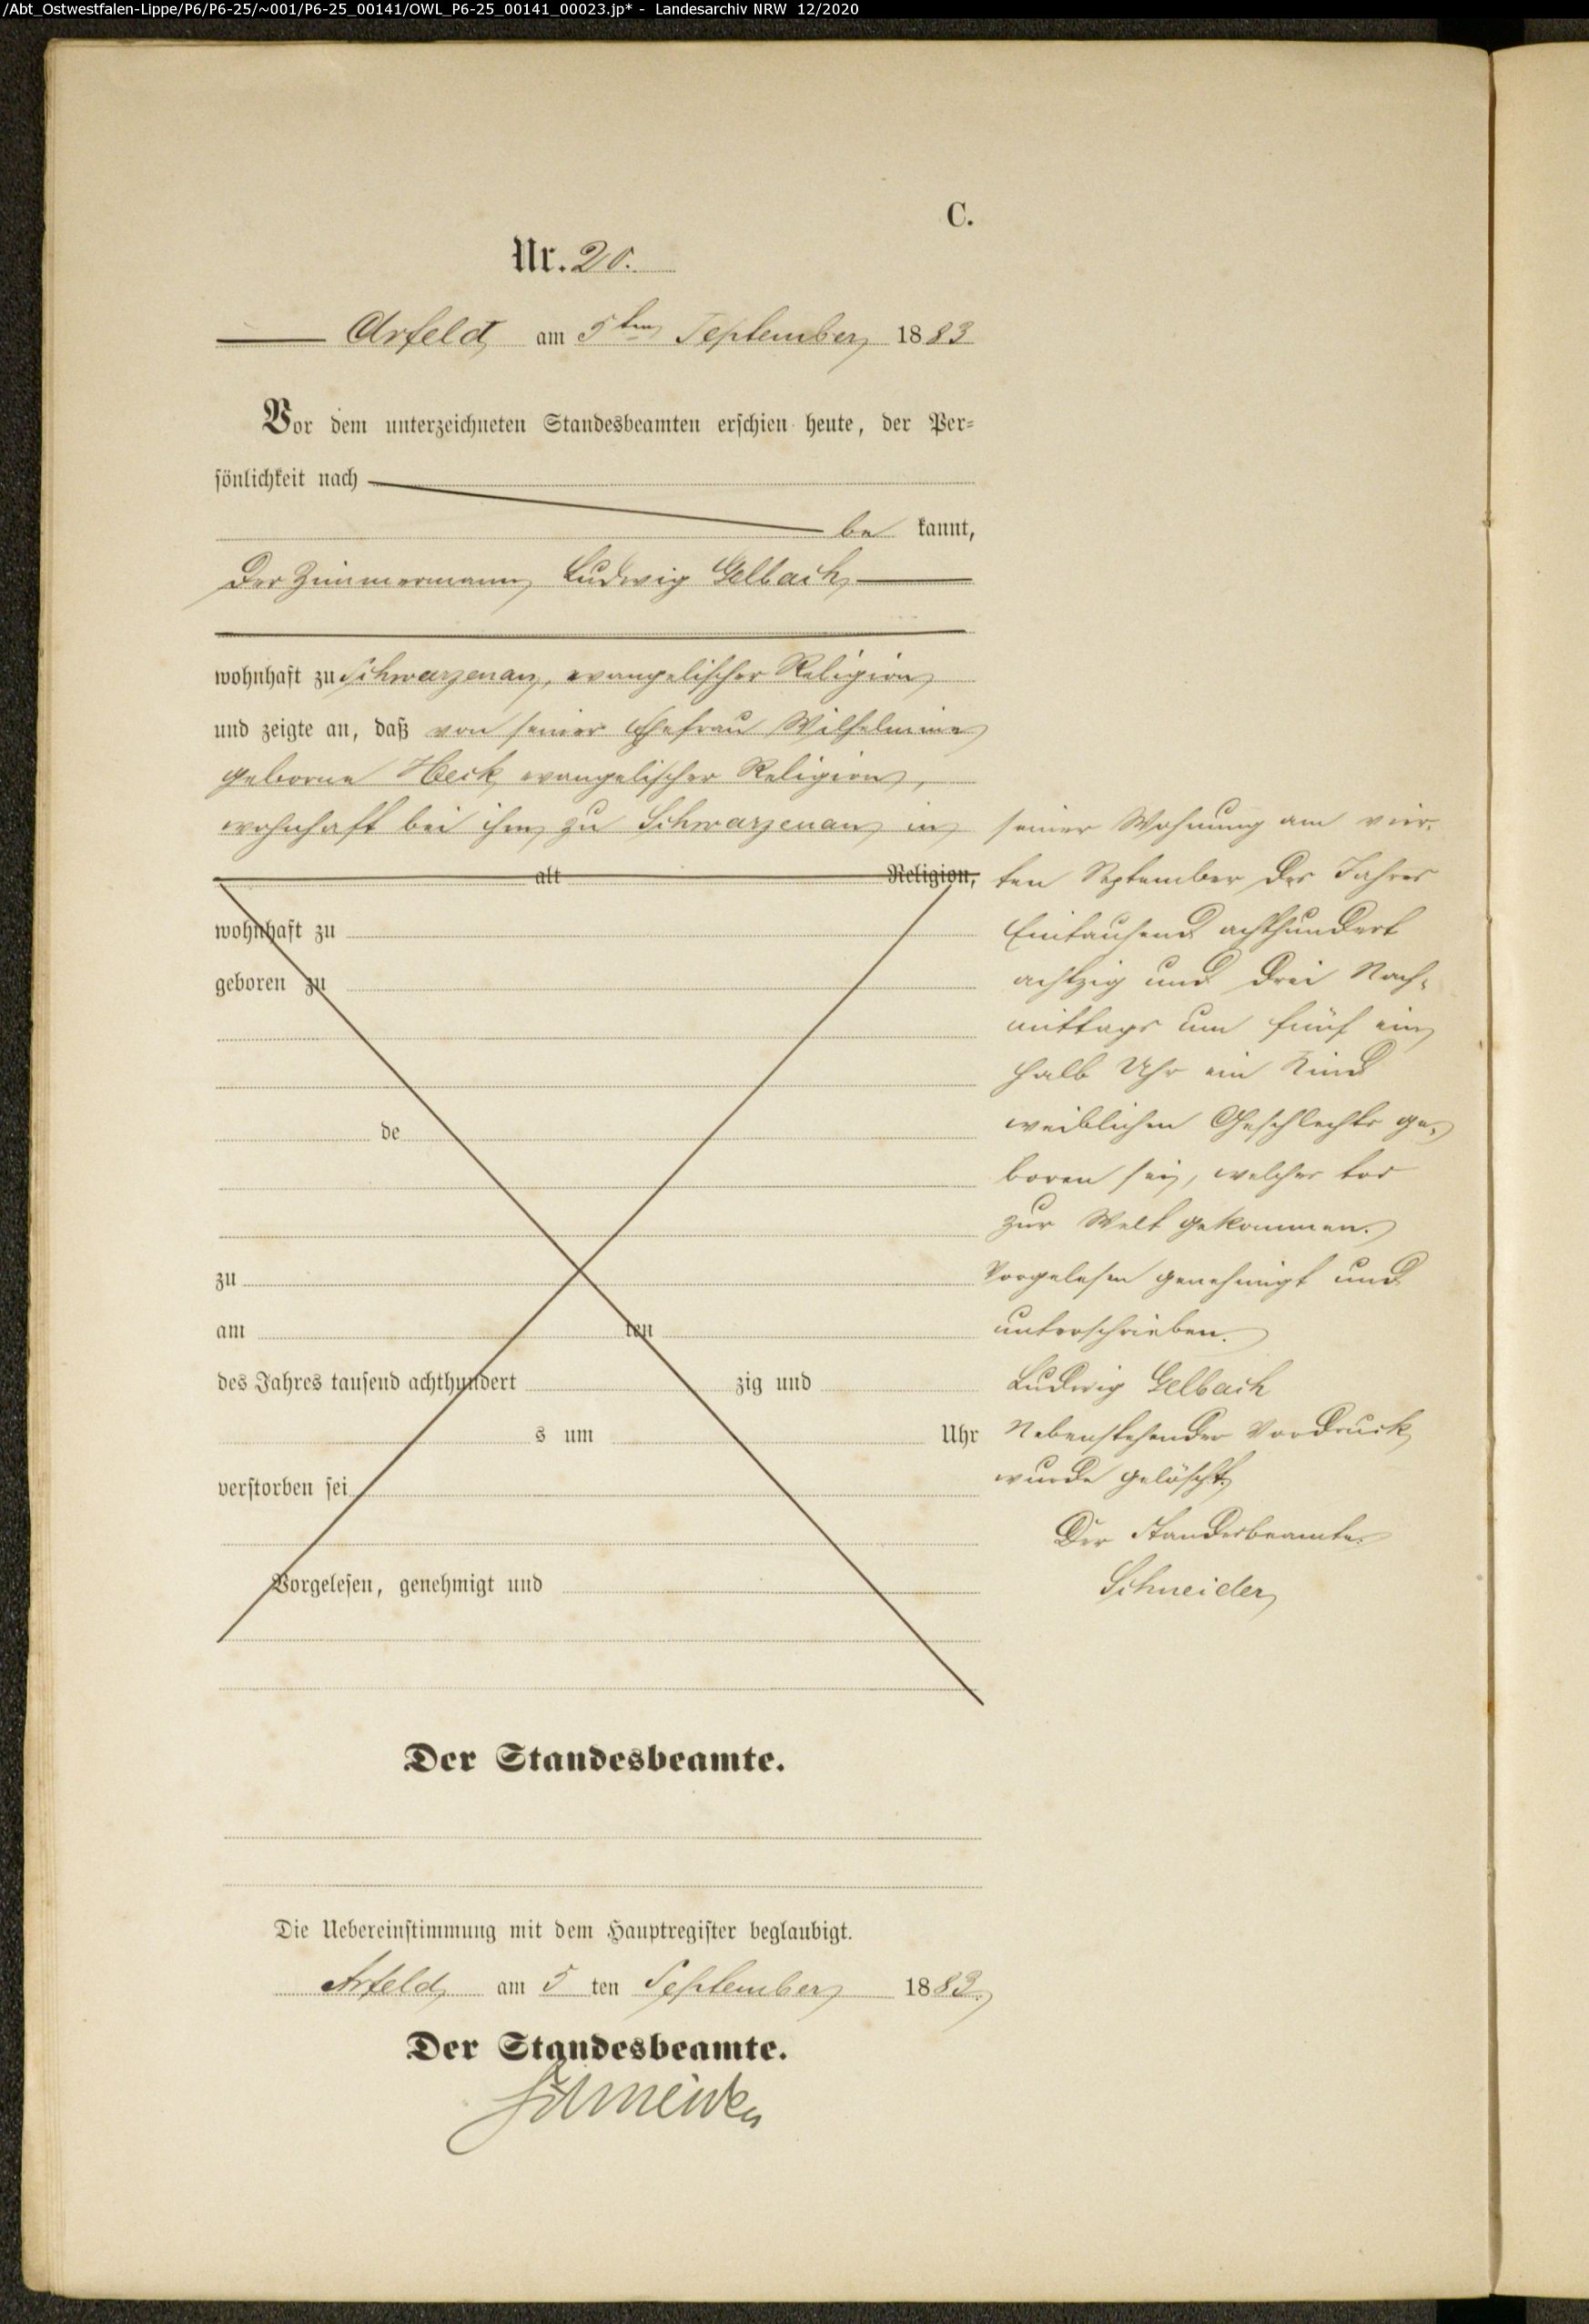 /Abt_Ostwestfalen-Lippe/P6/P6-25/~001/P6-25_00141/OWL_P6-25_00141_00023.jp* - Landesarchiv NRW 12/2020
C.
Nr. 20.
Arfeld am 5ten September 1883
Vor dem unterzeichneten Standesbeamten erschien heute, der Per-
sönlichkeit nach
be kannt,
der Zimmermann Ludwig Gelbach
wohnhaft zu Schwarzenau, evangelischer Religion
und zeigte an, daß von seiner Ehefrau Wilhelmine
geborne Heck evangelischer Religion,
wohnhaft bei ihm zu Schwarzenau in
seiner Wohnung am vier-
ten September des Jahres
Eintausend achthundert
achtzig und drei Nach-
mittags um fünf ein
halb Uhr ein Kind
weiblichen Geschlechts ge-
boren sei, welches tod
zur Welt gekommen.
Vorgelesen genehmigt und
unterschrieben.
Ludwig Gelbach
Nebenstehender Vordruck
wurde gelöscht
Der Standesbeamte
Schneider
alt Religion,
wohnhaft zu
geboren zu
de
zu
am ten
des Jahres tausend achthundert zig und
s um Uhr
verstorben sei
Vorgelesen, genehmigt und
Der Standesbeamte.
Die Uebereinstimmung mit dem Hauptregister beglaubigt.
Arfeld am 5 ten September 1883.
Der Standesbeamte.
Schneider